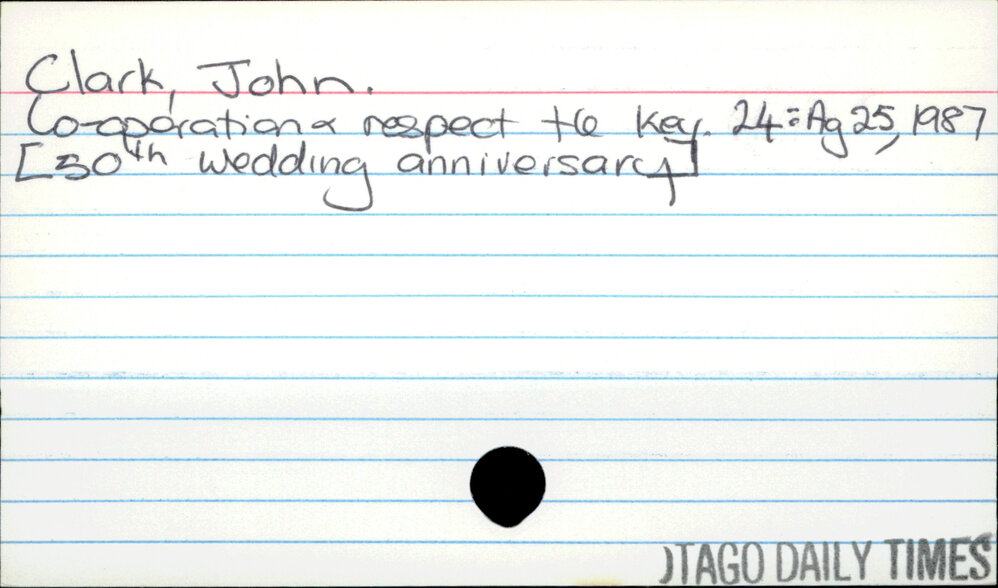 Clark, John.
Co-operation & respect the key. 24:Ag 25, 1987
[50th wedding anniversary]
OTAGO DAILY TIMES